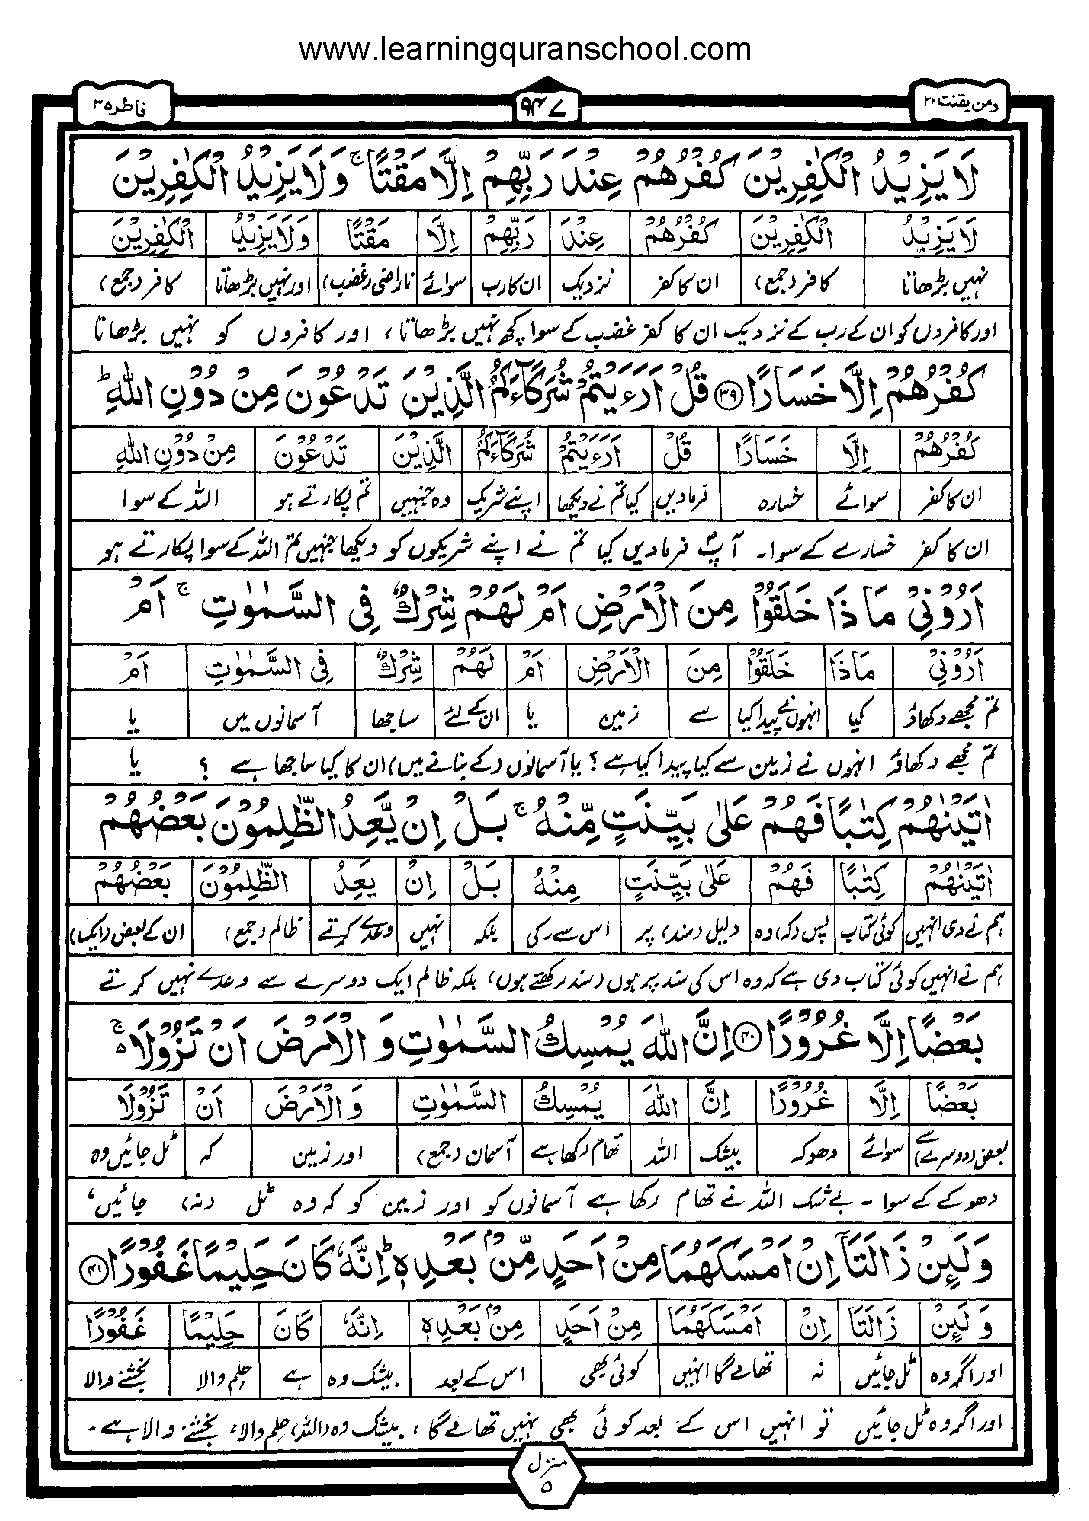 www.learningquranschool.com
ومن یقنت ۲۲
۹۴۷
فاطر ۳۵
لَا يَزِيْدُ الْكٰفِرِيْنَ كُفْرُهُمْ عِنْدَ رَبِّهِمْ اِلَّا مَقْتًا ۚ وَلَا يَزِيْدُ الْكٰفِرِيْنَ
لَا يَزِيْدُ الْكٰفِرِيْنَ كُفْرُهُمْ عِنْدَ رَبِّهِمْ اِلَّا مَقْتًا وَلَا يَزِيْدُ الْكٰفِرِيْنَ
نہیں بڑھاتا کافر (جمع) ان کا کفر نزدیک ان کا رب سوائے ناراضی (غضب) اور نہیں بڑھاتا کافر (جمع)
اور کافروں کو ان کے رب کے نزدیک ان کا کفر غضب کے سوا کچھ نہیں بڑھاتا، اور کافروں کو نہیں بڑھاتا
كُفْرُهُمْ اِلَّا خَسَارًا ۳۹ قُلْ اَرَءَيْتُمْ شُرَكَآءَكُمُ الَّذِيْنَ تَدْعُوْنَ مِنْ دُوْنِ اللّٰهِ ؕ
كُفْرُهُمْ اِلَّا خَسَارًا قُلْ اَرَءَيْتُمْ شُرَكَآءَكُمُ الَّذِيْنَ تَدْعُوْنَ مِنْ دُوْنِ اللّٰهِ
ان کا کفر سوائے خسارہ فرمادیں کیا تم نے دیکھا اپنے شریک وہ جنہیں تم پکارتے ہو اللہ کے سوا
ان کا کفر خسارے کے سوا۔ آپؐ فرمادیں کیا تم نے اپنے شریکوں کو دیکھا جنہیں تم اللہ کے سوا پکارتے ہو
اَرُوْنِيْ مَاذَا خَلَقُوْا مِنَ الْاَرْضِ اَمْ لَهُمْ شِرْكٌ فِي السَّمٰوٰتِ ۚ اَمْ
اَرُوْنِيْ مَاذَا خَلَقُوْا مِنَ الْاَرْضِ اَمْ لَهُمْ شِرْكٌ فِي السَّمٰوٰتِ اَمْ
تم مجھے دکھاؤ کیا انہوں نے پیدا کیا سے زمین یا ان کے لئے ساجھا آسمانوں میں یا
تم مجھے دکھاؤ انہوں نے زمین سے کیا پیدا کیا ہے؟ یا آسمانوں (کے بنانے میں) ان کا کیا ساجھا ہے؟ یا
اٰتَيْنٰهُمْ كِتٰبًا فَهُمْ عَلٰى بَيِّنَتٍ مِّنْهُ ۚ بَلْ اِنْ يَّعِدُ الظّٰلِمُوْنَ بَعْضُهُمْ
اٰتَيْنٰهُمْ كِتٰبًا فَهُمْ عَلٰى بَيِّنَتٍ مِنْهُ بَلْ اِنْ يَعِدُ الظّٰلِمُوْنَ بَعْضُهُمْ
ہم نے دی انہیں کوئی کتاب پس (کہ) وہ دلیل (سند) پر اس سے (کی) بلکہ نہیں وعدے کرتے ظالم (جمع) ان کے بعض (ایک)
ہم نے انہیں کوئی کتاب دی ہے کہ وہ اس کی سند پر ہوں (سند رکھتے ہوں) بلکہ ظالم ایک دوسرے سے وعدے نہیں کرتے
بَعْضًا اِلَّا غُرُوْرًا ۴۰ اِنَّ اللّٰهَ يُمْسِكُ السَّمٰوٰتِ وَ الْاَرْضَ اَنْ تَزُوْلَا ۚ۬
بَعْضًا اِلَّا غُرُوْرًا اِنَّ اللّٰهَ يُمْسِكُ السَّمٰوٰتِ وَ الْاَرْضَ اَنْ تَزُوْلَا
بعض (دوسرے) سے سوائے دھوکہ بیشک اللہ تھام رکھا ہے آسمان (جمع) اور زمین کہ ٹل جائیں وہ
دھوکے کے سوا۔ بے شک اللہ نے تھام رکھا ہے آسمانوں کو اور زمین کو کہ وہ ٹل (نہ) جائیں،
وَ لَئِنْ زَالَتَاۤ اِنْ اَمْسَكَهُمَا مِنْ اَحَدٍ مِّنْۢ بَعْدِهٖ ؕ اِنَّهٗ كَانَ حَلِيْمًا غَفُوْرًا ۴۱
وَ لَئِنْ زَالَتَا اِنْ اَمْسَكَهُمَا مِنْ اَحَدٍ مِنْۢ بَعْدِهٖ اِنَّهٗ كَانَ حَلِيْمًا غَفُوْرًا
اور اگر وہ ٹل جائیں نہ تھامے گا انہیں کوئی بھی اس کے بعد بیشک وہ ہے حلم والا بخشنے والا
اور اگر وہ ٹل جائیں تو انہیں اس کے بعد کوئی بھی نہیں تھامے گا، بیشک وہ (اللہ) حلم والا، بخشنے والا ہے۔
منزل
۵